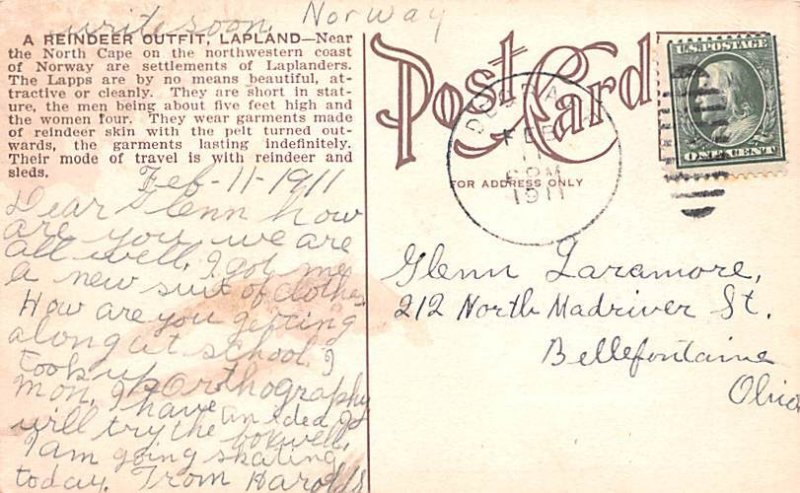 write soon Norway
A REINDEER OUTFIT, LAPLAND—Near
the North Cape on the northwestern coast
of Norway are settlements of Laplanders.
The Lapps are by no means beautiful, at-
tractive or cleanly. They are short in stat-
ure, the men being about five feet high and
the women four. They wear garments made
of reindeer skin with the pelt turned out-
wards, the garments lasting indefinitely.
Their mode of travel is with reindeer and
sleds.
Feb-11-1911
Dear Glenn how
are you, we are
all well, I got me
a new suit of clothes
How are you getting
along at school. I
took up orthography
mon. I have an idea I
will try the boxwell,
I am going skating
today. From Harold S
Post Card
FOR ADDRESS ONLY
FEB
11
6 PM
1911
U.S. POSTAGE
ONE CENT
Glenn Laramore,
212 North Madriver St.
Bellefontaine
Ohio